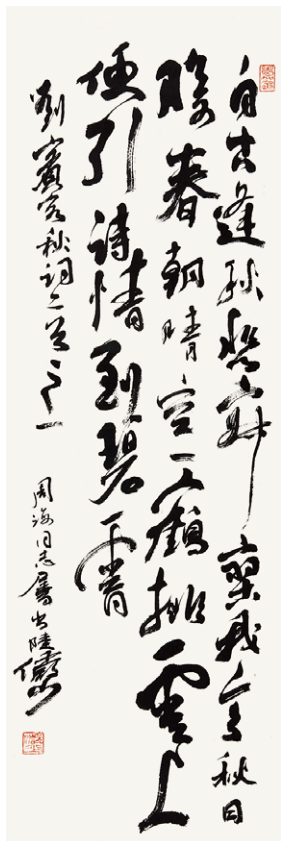 自古逢秋悲寂寥我言秋日
勝春朝晴空一鶴排雲上
便引詩情到碧霄
劉賓客秋詞二首之一
周海同志屬書陸儼少